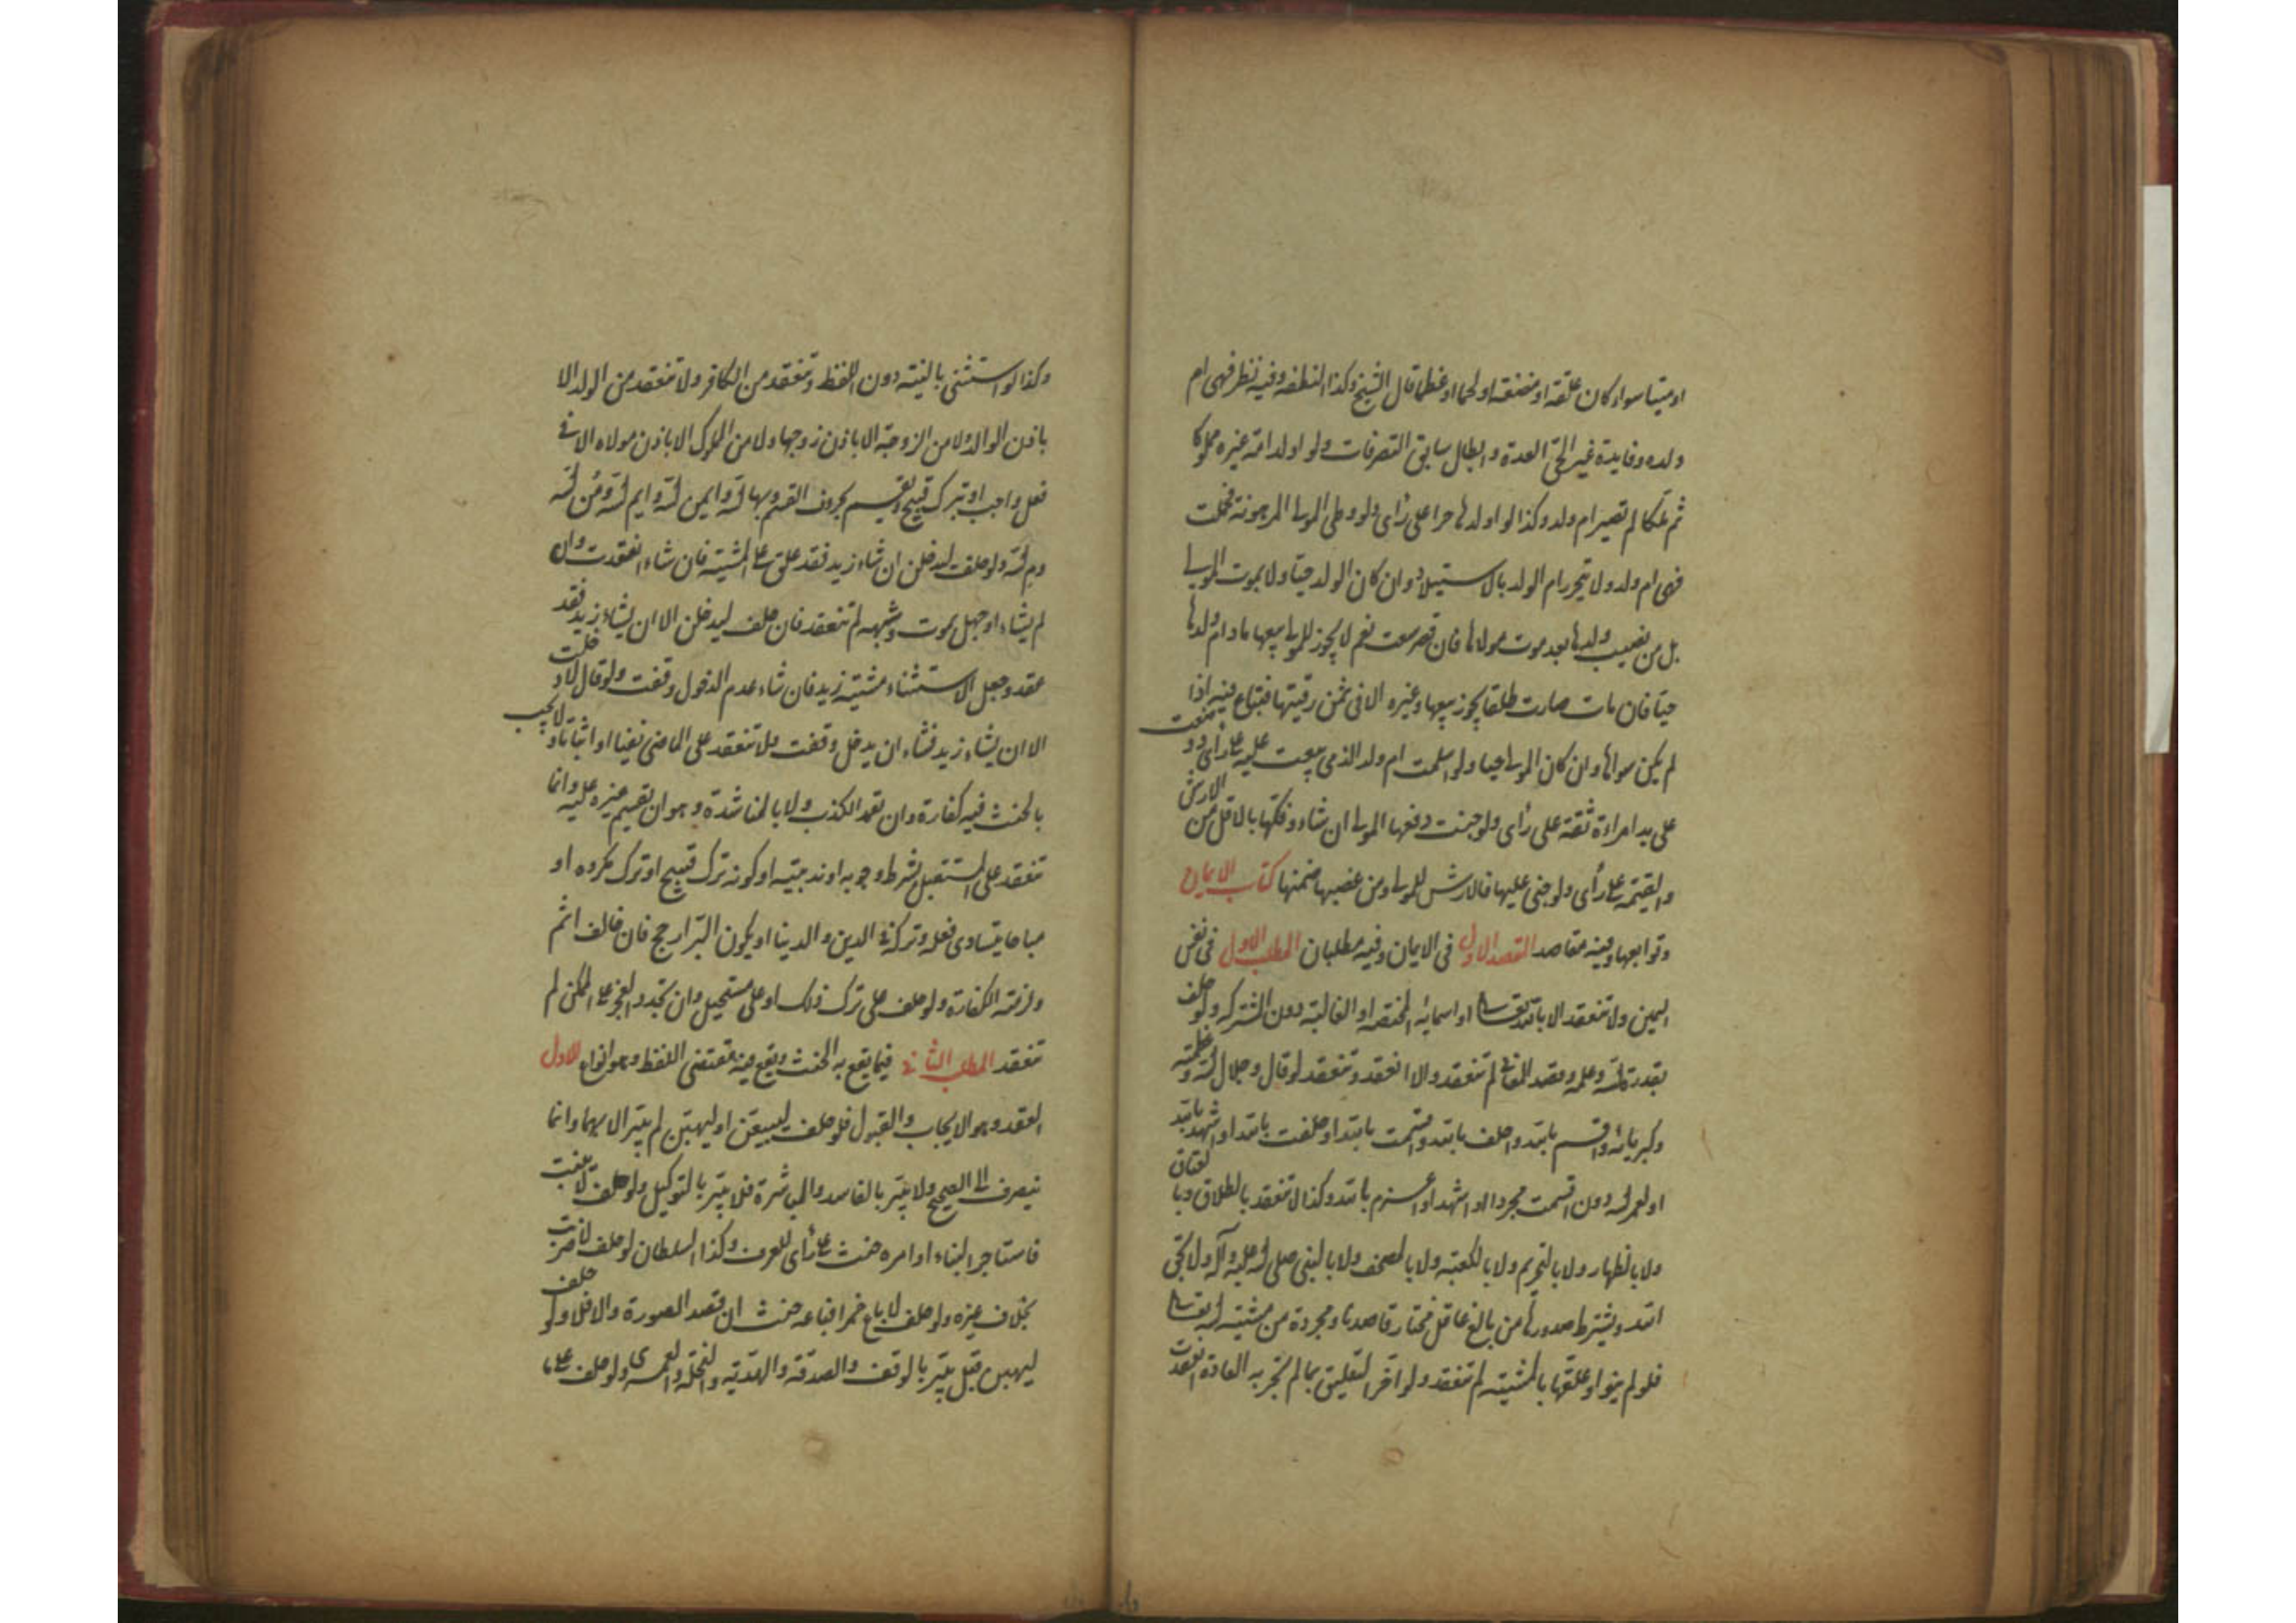 او ميتا سواء كان علقة او مضغة او لحما او عظما قال الشيخ وكذا النطفه وفيه نظر فهى ام
ولده وفايدة غير الحى العدة وابطال سابق التصرفات ولو اولد امة غيره مملوكا
ثم ملكها لم تصير ام ولد وكذا لو اولدها حرا على رأى ولو وطى المولى المرهونة فحملت
فهى ام ولد ولا يتحرر ام الولد بالاستيلاد وان كان الولد حيا ولا بموت المولى
بل من نصيب ولدها بعد موت مولاها فان قصر سعت نعم لا يجوز للمولى بيعها مادام ولدها
حيا فان مات صارت طلقا يجوز بيعها وغيره الا فى ثمن رقبتها فتباع فيه اذا
لم يكن سواها وان كان المولى حيا ولو اسلمت ام ولد الذمى بيعت عليه على رأى ووضعت
على يد امراءة ثقة على رأى ولو جنت دفعها المولى ان شاء وفكها بالاقل من الارش
والقيمة على رأى ولو جنى عليها فالارش للمولى ومن غصبها ضمنها كتاب الايمان
وتوابعها وفيه مقاصد القصد الاول فى الايمان وفيه مطلبان المطلب الاول فى نفس
اليمين ولا تنعقد الا بالله تعالى او اسمائه المختصه او الغالبة دون المشتركه ولو حلف
بقدرة الله وعلمه وقصد المعانى لم تنعقد والا انعقد وتنعقد لو قال وجلال الله وعظمته
وكبريائه واقسم بالله واحلف بالله واقسمت بالله او حلفت بالله او اشهد بالله
او لعمر الله دون اقسمت مجردا او اشهد او اعزم بالله وكذا لا تنعقد بالطلاق وبالعتاق
ولا بالظهار ولا بالتحريم ولا بالكعبه ولا بالمصحف ولا بالنبى صلى الله عليه وآله ولا بحق
الله ويشترط صدورها من بالغ عاقل مختار قاصد ناو مجردة من مشيته الله تعالى
فلو لم ينو او علقها بالمشيته لم تنعقد ولو اخر التعليق بما لم تجر به العادة انعقدت
وكذا لو استثنى بالنيته دون اللفظ وتنعقد من الكافر ولا تنعقد من الولد الا
باذن الوالد ولا من الزوجة الا باذن زوجها ولا من المملوك الا باذن مولاه الا فى
فعل واجب او ترك قبيح ويقسم بحروف القسم وبها الله وايمن الله وايم الله ومُن الله
وم الله ولو حلف ليدخلن ان شاء زيد فقد علق على المشيته فان شاء انعقدت وان
لم يشاء او جهل بموت وشبهه لم تنعقد فان حلف ليدخلن الا ان يشاء زيد فقد
عقد وجعل الاستثناء مشيته زيد فان شاء عدم الدخول وقفت ولو قال لا دخلت
الا ان يشاء زيد فشاء ان يدخل وقفت ولا تنعقد على الماضى نفيا او اثباتا ولا يجب
بالحنث فيه كفارة وان تعمد الكذب ولا بالمناشدة وهو ان يقسم غيره عليه وانما
تنعقد على المستقبل بشرط وجوبه او ندبيته او كونه ترك قبيح او ترك مكروه او
مباحا يتساوى فعله وتركه فى الدين والدنيا او يكون البر ارجح فان خالف اثم
ولزمته الكفارة ولو حلف على ترك ذلك او على مستحيل وان تجدد العجز على الممكن لم
تنعقد المطلب الثانى فيما يقع به الحنث ويقع فيه مقتضى اللفظ وهو انواع الاول
العقد وهو الايجاب والقبول فلو حلف ليبيعن او ليهبن لم يبر الا بهما وانما
ينصرف الى الصحيح ولا يبر بالفاسد والمباشرة فلا يبر بالتوكيل ولو حلف لا بنيت
فاستاجر البناء او امره حنث على رأى للعرف وكذا السلطان لو حلف لا ضربت
بخلاف غيره ولو حلف لا باع خمرا فباعه حنث ان قصد الصورة والا فلا ولو حلف
ليهبن قيل يبر بالوقف والصدقة والهدية والنحلة والعمرى ولو حلف على ما